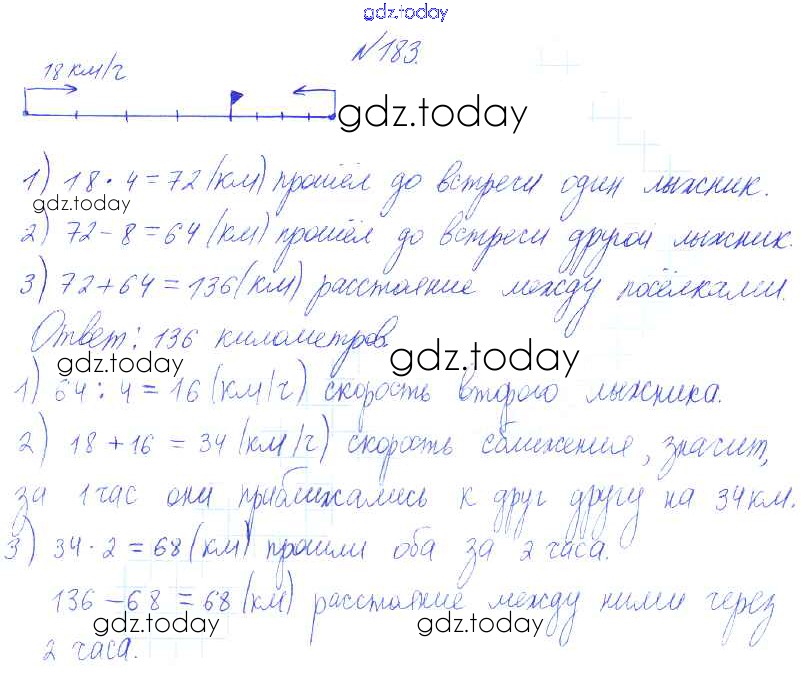 gdz.today
№183.
18 км/ч
gdz.today
1) 18 · 4 = 72 (км) прошёл до встречи один лыжник.
gdz.today
2) 72 - 8 = 64 (км) прошёл до встречи другой лыжник.
3) 72 + 64 = 136 (км) расстояние между посёлками.
Ответ: 136 километров.
gdz.today gdz.today
1) 64 : 4 = 16 (км/ч) скорость второго лыжника.
2) 18 + 16 = 34 (км/ч) скорость сближения, значит,
за 1 час они приближались к друг другу на 34 км.
3) 34 · 2 = 68 (км) прошли оба за 2 часа.
136 - 68 = 68 (км) расстояние между ними через
gdz.today gdz.today
2 часа.